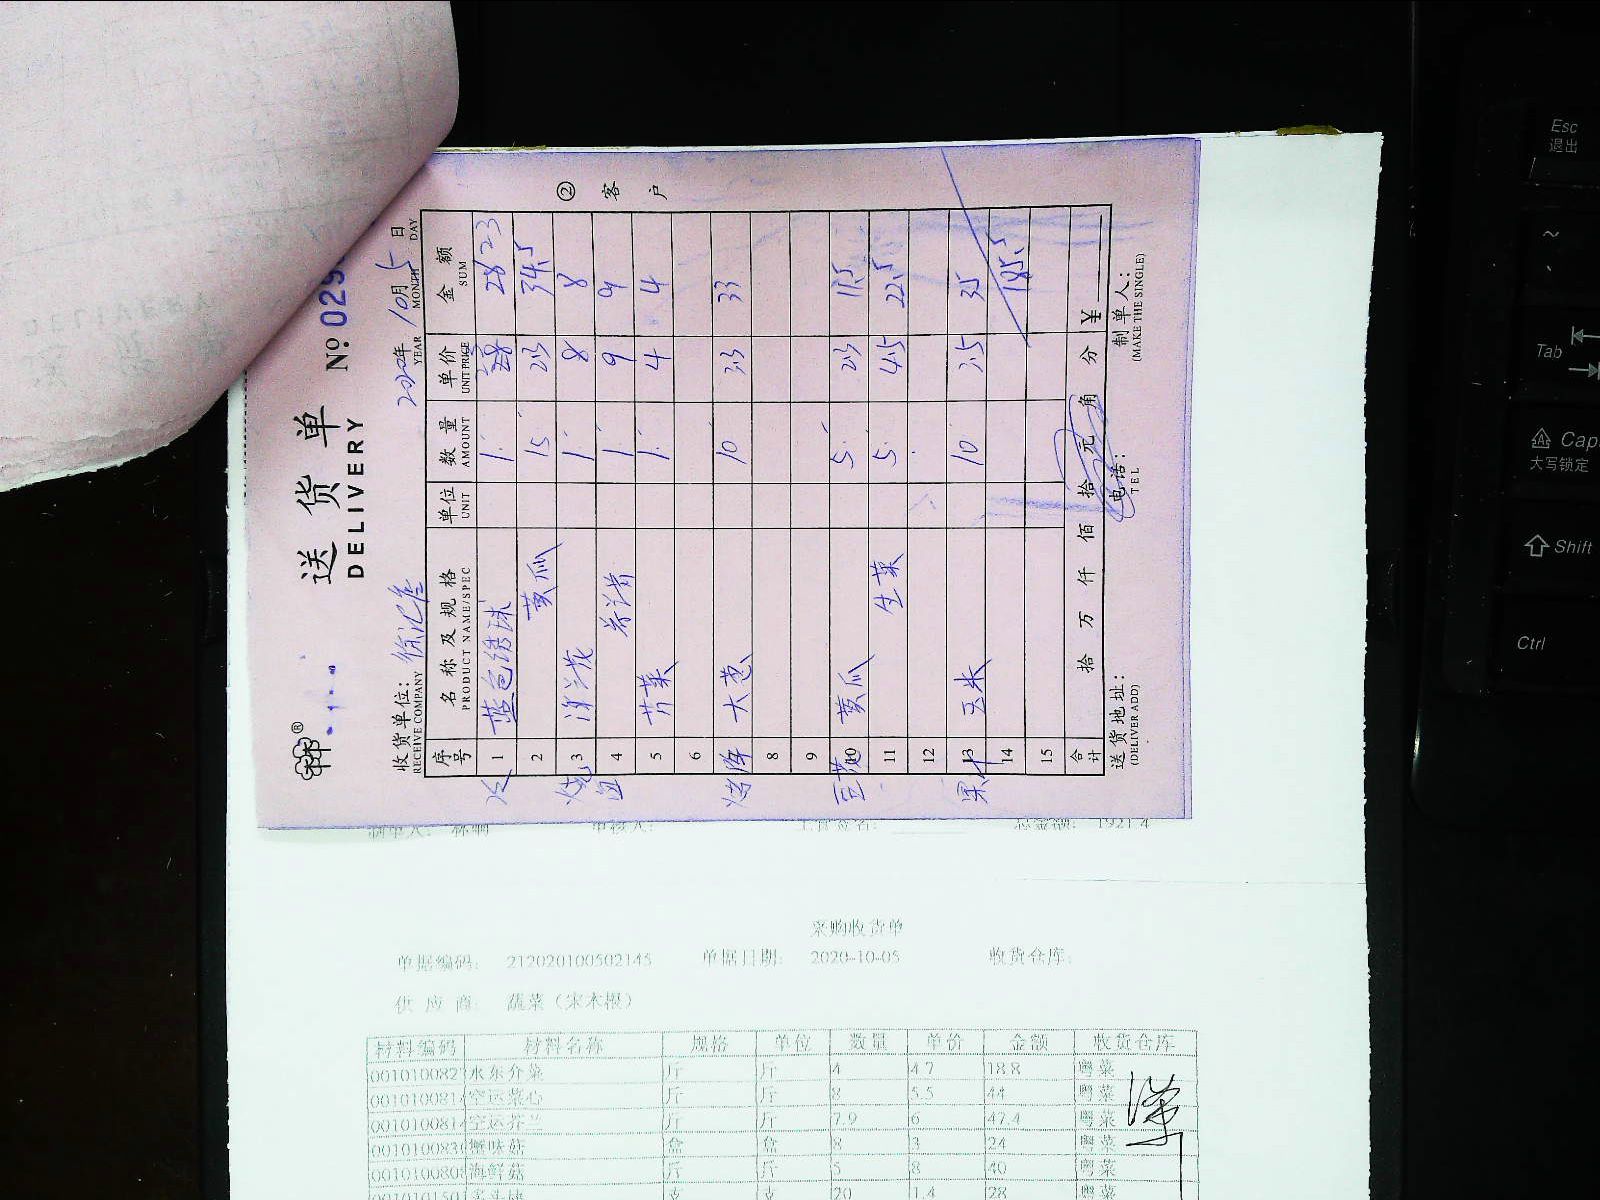 送 货 单
DELIVERY
№:029
收货单位: 徐记
RECEIVE COMPANY
2020年 10月 5日
YEAR MONTH DAY
② 客 户
序号 名称及规格 单位 数量 单价 金额
PRODUCT NAME/SPEC UNIT AMOUNT UNIT PRICE SUM
1 蓝色绣球 1 28 23
2 黄瓜 15 2.3 34.5
烧 3 洋兰花 1 8 8
4 1 9 9
5 芹菜 1 4 4
6
7 大葱 10 3.3 33
8
9
10 黄瓜 5 2.3 11.5
11 生菜 5 4.5 22.5
12
果汁 13 玉米 10 3.5 35
14 185.5
15
合计 拾 万 仟 佰 拾 元 角 分 ¥
送货地址:
(DELIVER ADD)
电话:
TEL
制单人:
(MAKE THE SINGLE)
总金额: 1921.4
采购收货单
单据编码: 212020100502145 单据日期: 2020-10-05 收货仓库:
供 应 商: 蔬菜(宋木根)
材料编码 材料名称 规格 单位 数量 单价 金额 收货仓库
001010082 水东介菜 斤 斤 4 4.7 18.8 粤菜
001010081 空运菜心 斤 斤 8 5.5 44 粤菜
001010081 空运芥兰 斤 斤 7.9 6 47.4 粤菜
001010083 蟹味菇 盒 盒 8 3 24 粤菜
001010080 海鲜菇 斤 斤 5 8 40 粤菜
001010150 支 支 20 1.4 28 粤菜
Esc
退出
~
Tab
Cap
大写锁定
Shift
Ctrl